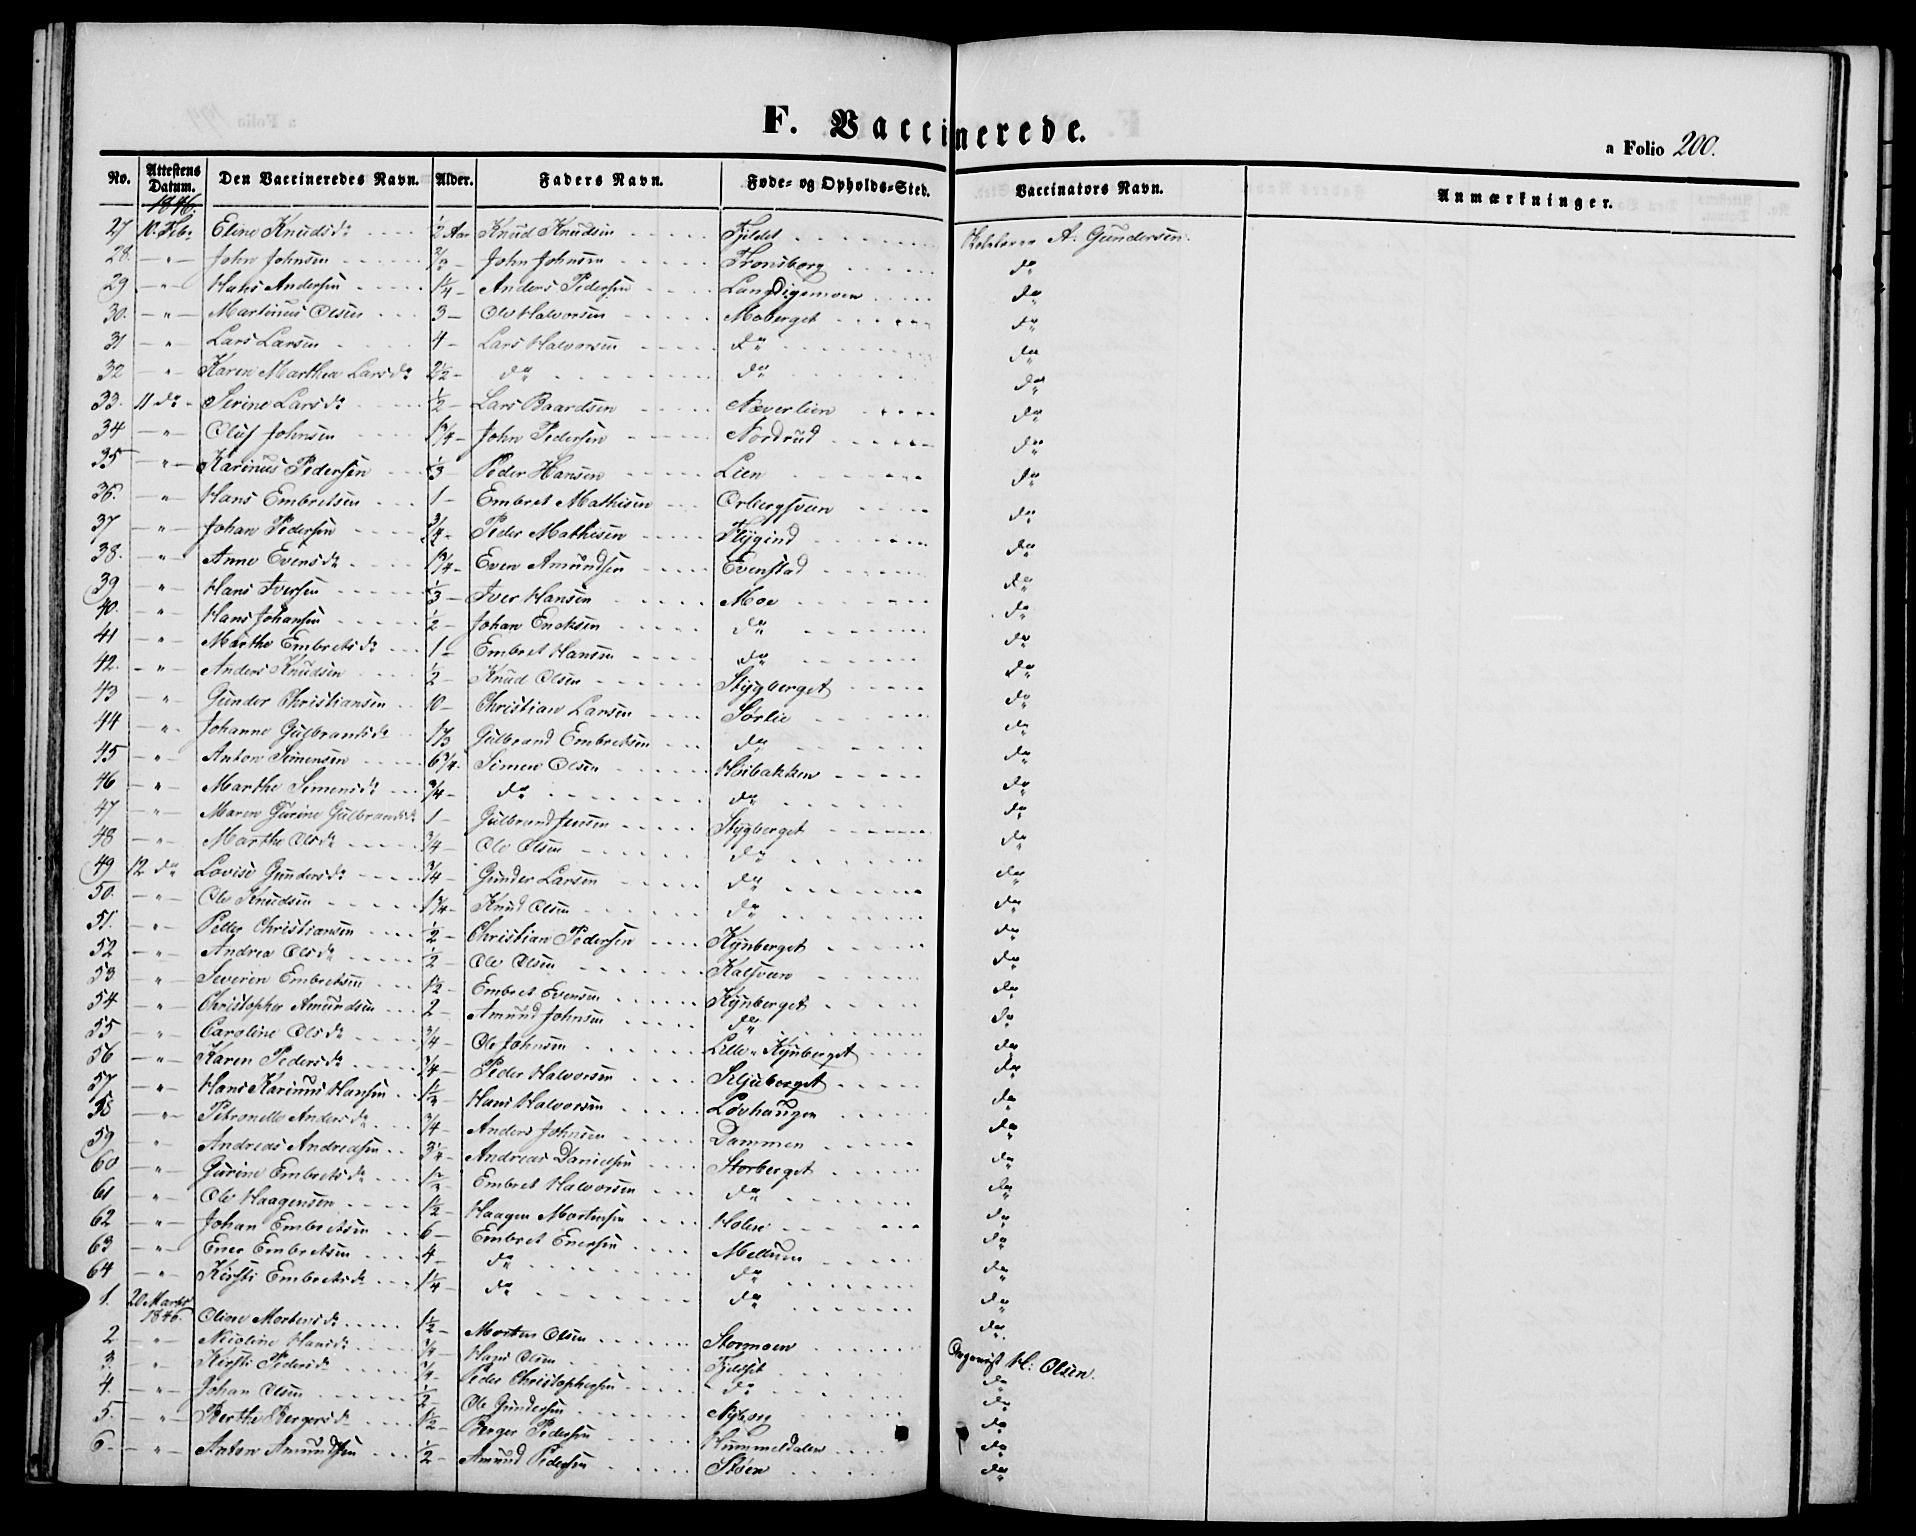 F. Vaccinerede.
a Folio 200.
No. Attestens Datum. Den Vaccineredes Navn. Alder. Faders Navn. Føde- og Opholds-Sted. Vaccinators Navn. Anmærkninger.
1846.
27 10. Febr Eline Knudsdr ½ Aar Knud Knudsen Fjeldet A. Gundersen.
28. — " — John Johnsen John Johnsen Tronsborg do
29 — " — Hans Andersen 1¼ — Anders Pedersen do
30. — " — Martinus Olsen 3 — Ole Halvorsen Moberget do
31 — " Lars Larsen 4 — Lars Halvorsen do do
32 — " Karen Marthea Larsdr 2½ — do do do
33. 11 do — Serine Larsdr ½ — Lars Baardsen Næverlien do
34 — " — Oluf Johnsen 1¾ — John Pedersen Nordrud do
35 — " — Karinus Pedersen ⅓ Peder Hansen Lien do
36. — " — Hans Embretsen 1 — Embret Mathisen do
37 — " — Johan Pedersen ¾ — Peder Mathisen do
38. — " — Anne Evensdr 1¾ — Even Amundsen Evenstad do
39 — " — Hans Iversen ⅓ — Iver Hansen Moe do
40. — " — Hans Johansen ½ — Johan Ericksen do do
41 — " — Marthe Embretsdr 1 — Embret Hansen do do
42. — " — Anders Knudsen ½ — Knud Olsen Stygberget do
43 — " — Gunder Christiansen 10 — Christian Larsen Sørlie do
44 — " — Johanne Gulbrandsdr 1⅓ Gulbrand Embretsen do do
45 — " — Anton Simensen 6¾ — Simen Olsen Høibakken do
46 — " — Marthe Simensdr ¾ — do do do
47 — " — Maren Gurine Gulbrandsdr 1 — Gulbrand Jensen Stygberget do
48 — " — Marthe Olsdr ¾ — Ole Olsen do do
49 12 do Lovise Gundersdr ¾ — Gunder Larsen do do
50. — " — Ole Knudsen 1¾ — Knud Olsen do do
51. — " — Peder Christiansen ½ — Christian Pedersen Kynberget do
52 — " — Andrea Olsdr ½ — Ole Olsen Kalsveen do
53 — " — Severin Embretsen 1½ — Embret Evensen Kynberget do
54 — " — Christopher Amundsen 2 — Amund Johnsen do do
55 — " — Caroline Olsdr ¾ — Ole Johnsen Lille-Kynberget do
56 — " — Karen Pedersdr ¾ — Peder Halvorsen Kljuberget do
57 — " — Hans Karinus Hansen 1½ — Hans Halvorsen Løvhaugen do
58 — " — Petronelle Andersdr ¾ — Anders Johnsen Dammen do
59 — " — Andreas Andreasen 3¼ — Andreas Danielsen Storberget do
60 — " — Gurine Embretsdr 1½ — Embret Halvorsen do do
61 — " — Ole Haagensen 1½ — Haagen Mortensen Holen do
62 — " — Johan Embretsen 6 — Embret Enersen Mellum do
63 — " — Ener Embretsen 4 — do do do
64 — " — Kirsti Embretsdr 1¼ — do do do
1. 20 Marts 1846. Oline Mortensdr 1½ — Morten Olsen Stormoen H: Olsen.
2 — " — Nicoline Hansdr ¾ — Hans Olsen Fjeldset do
3. — " — Kirsti Pedersdr ¾ — Peder Christophersen do do
4. — " — Johan Olsen ½ — Ole Gundersen Nyborg do
5. — " — Berthe Bergersdr 1½ — Berger Pedersen Hummeldalen do
6 — " — Anton Amundsen ½ — Amund Pedersen Støen do